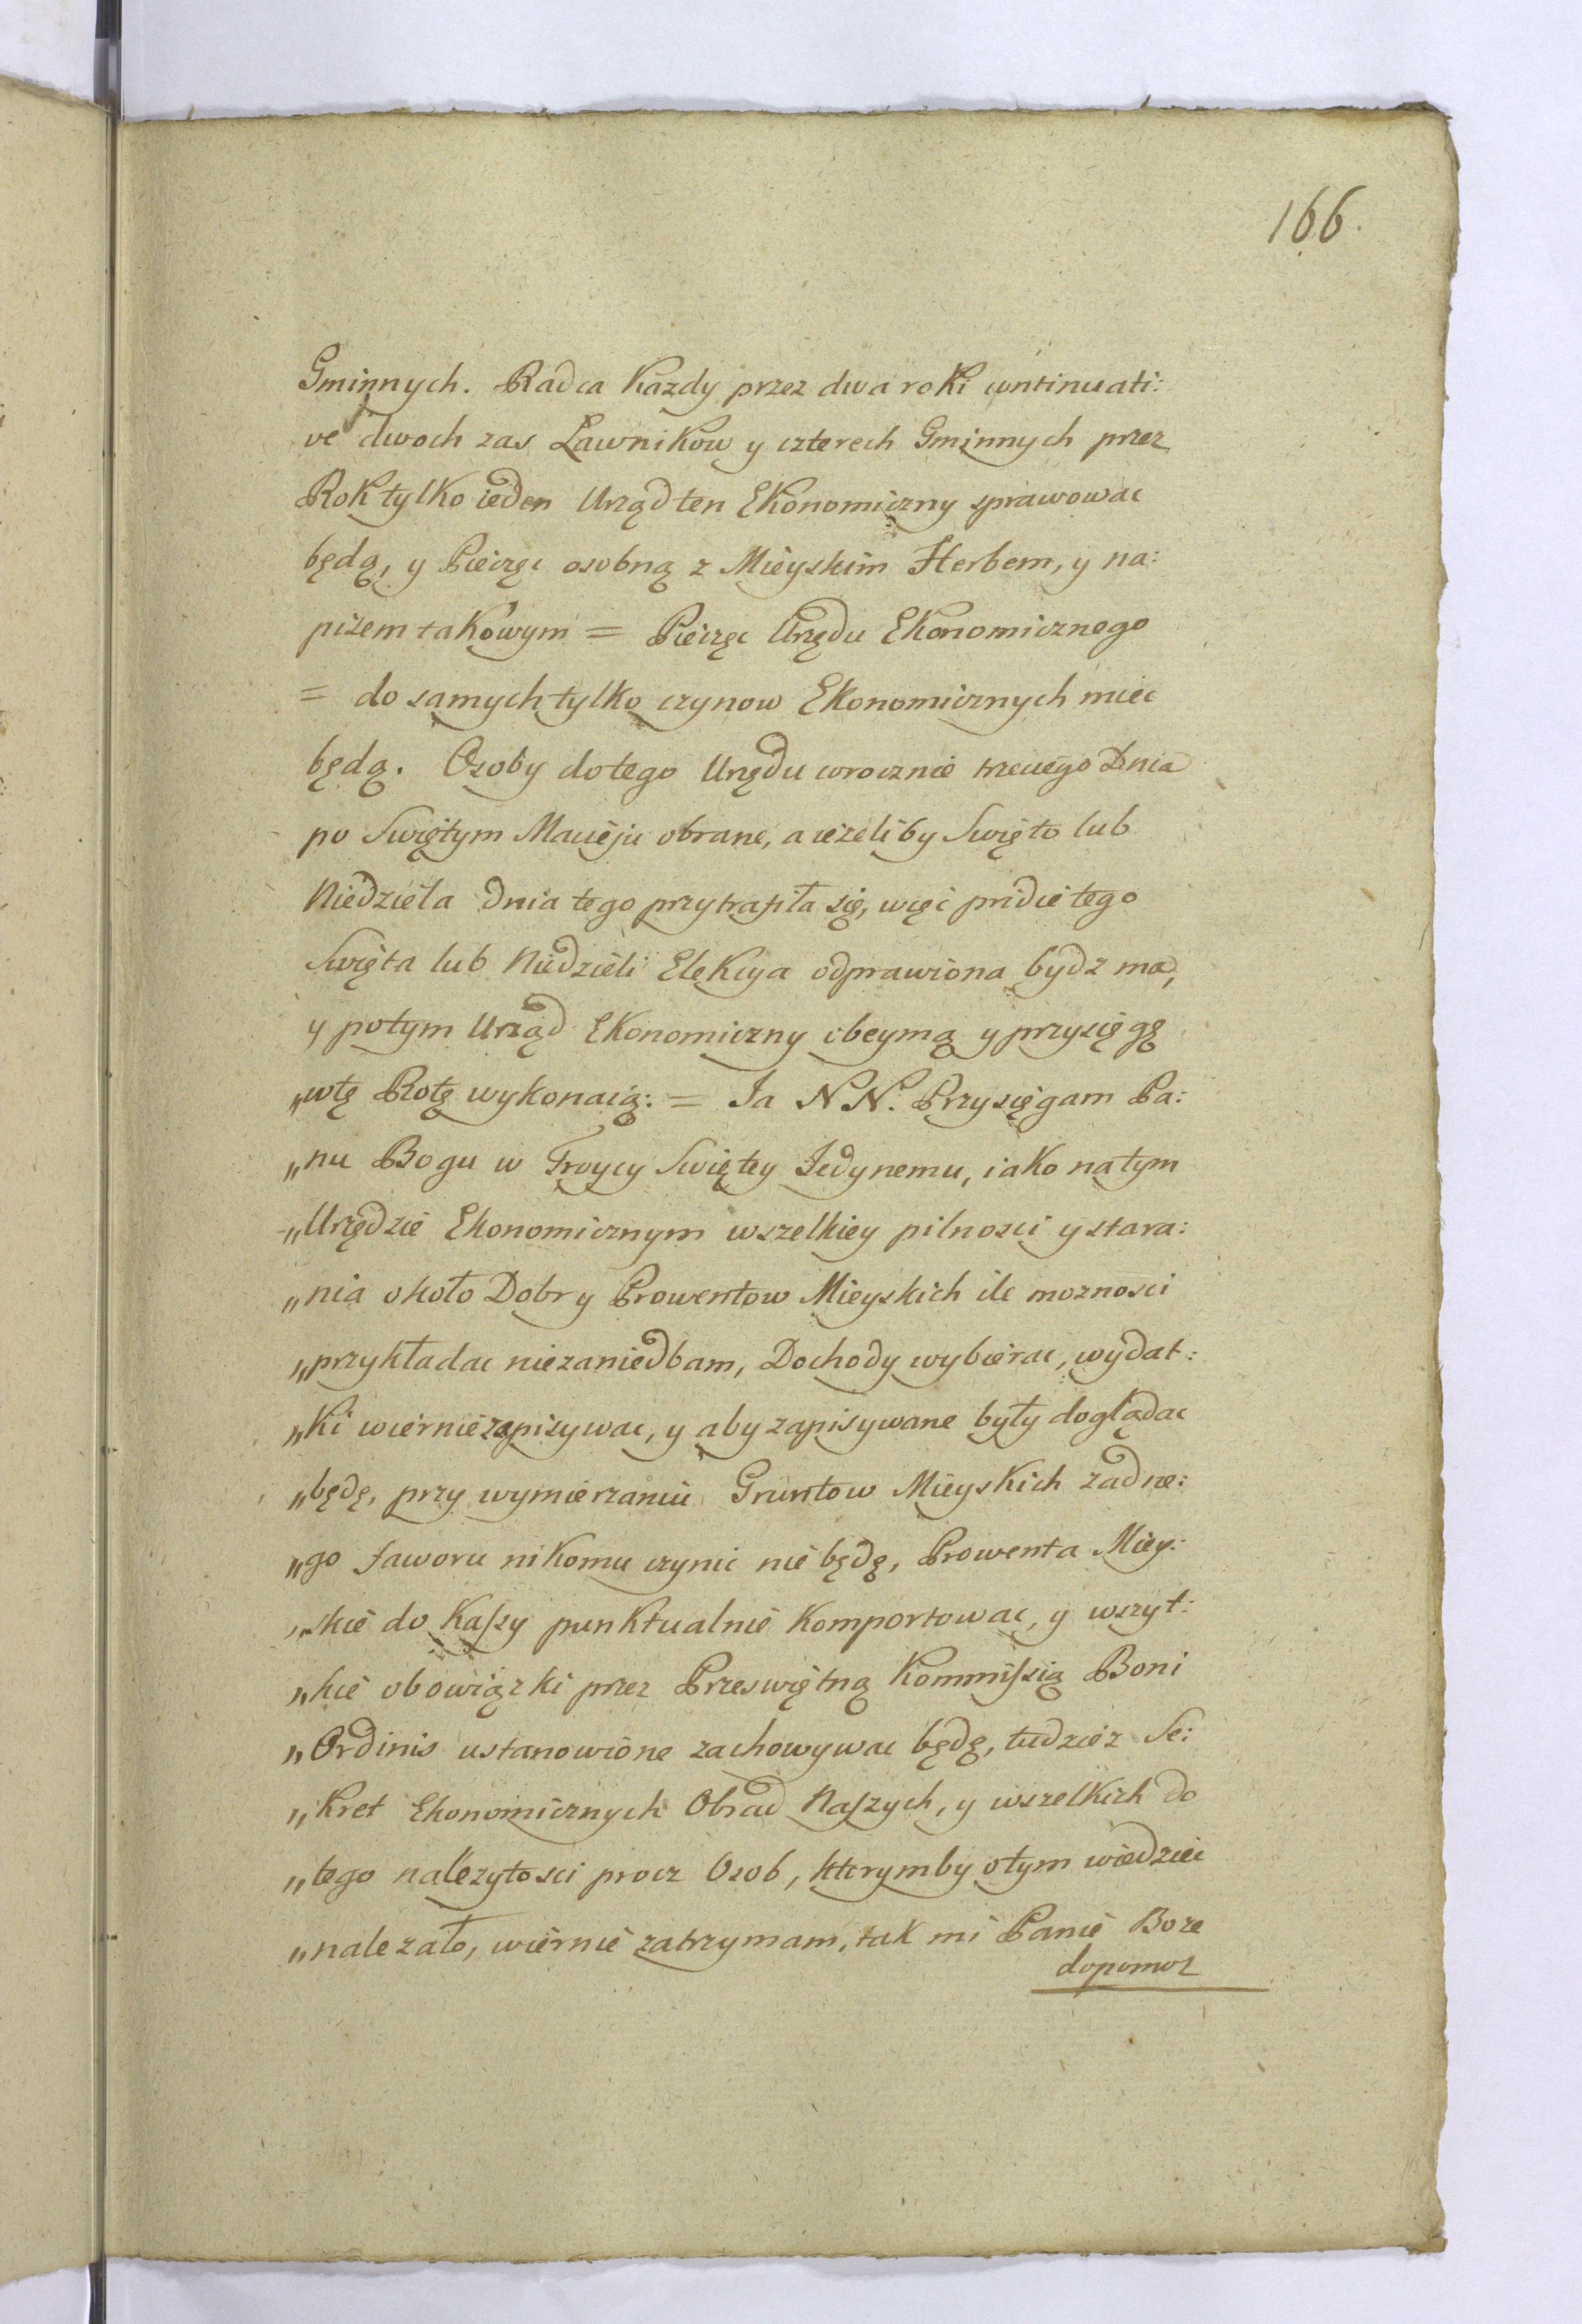 166.
Gminnych. Radca Kazdy przez dwa roki continuati:
ve dwoch zas Ławnikow y czterech Gminnych przez
Rok tylko ieden Urząd ten Ekonomiczny sprawowac
będą, y Pieczęc osobną z Mieyskim Herbem, y na:
pisem takowym = Pieczęc Urzędu Ekonomicznego
= do samych tylko czynow Ekonomicznych miec
będą. Osoby do tego Urzędu corocznie trzeciego Dnia
po Swiętym Macieju obrane, a iezeliby Swięto lub
Niedziela dnia tego przytrafiła się, więc pridie tego
Swięta lub Niedzieli Elekcya odprawiona bydz ma,
y potym Urząd Ekonomiczny obeymą y przysięgę
„wtę Rotę wykonaią: = Ja NN. Przysięgam Pa:
„nu Bogu w Troycy Swiętey Jedynemu, iako na tym
„Urzędzie Ekonomicznym wszelkiey pilnosci y stara:
„nia około Dobr y Prowentow Mieyskich ile moznosci
„przykładac niezaniedbam, Dochody wybierac, wydat:
„ki wiernie zapisywac, y aby zapisywane były doglądac
„będę, przy wymierzaniu Gruntow Mieyskich zadne:
„go faworu nikomu czynic nie będę, Prowenta Miey:
„skie do Kaſsy punktualnie Komportowac, y wszyt:
„kie obowiązki przez Przeswiętną Kommiſsią Boni
„Ordinis ustanowione zachowywac będę, tudziez Se:
„kret Ekonomicznych Obrad Naſzych, y wszelkich do
„tego nalezytosci procz Osob, ktorymby o tym wiedziec
„nalezało, wiernie zatrzymam, tak mi Panie Boze
dopomoz